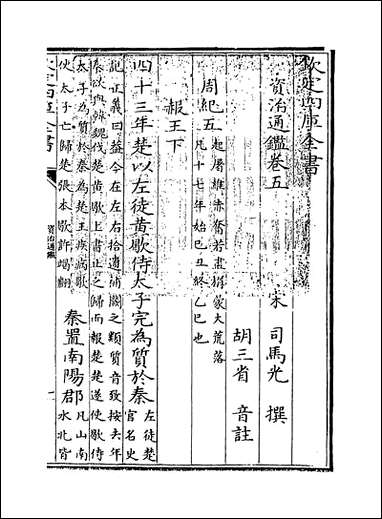 欽定四庫全書
資治通鑑卷五
宋 司馬光 撰
胡三省 音註
周紀五 起屠維赤奮若盡旃蒙大荒落凡十七年始己丑終乙巳也
赧王下
四十三年楚以左徒黃歇侍太子完為質於秦 左徒楚官名史
記正義曰蓋今在左右拾遺補闕之類質音致按去年
秦欲與韓魏伐楚黃歇上書止之歸而報楚楚遂使歇侍
太子為質於秦為楚王疾病歇
使太子亡歸楚張本歇許竭翻 秦置南陽郡 凡山南水北皆
欽定四庫全書
資治通鑑